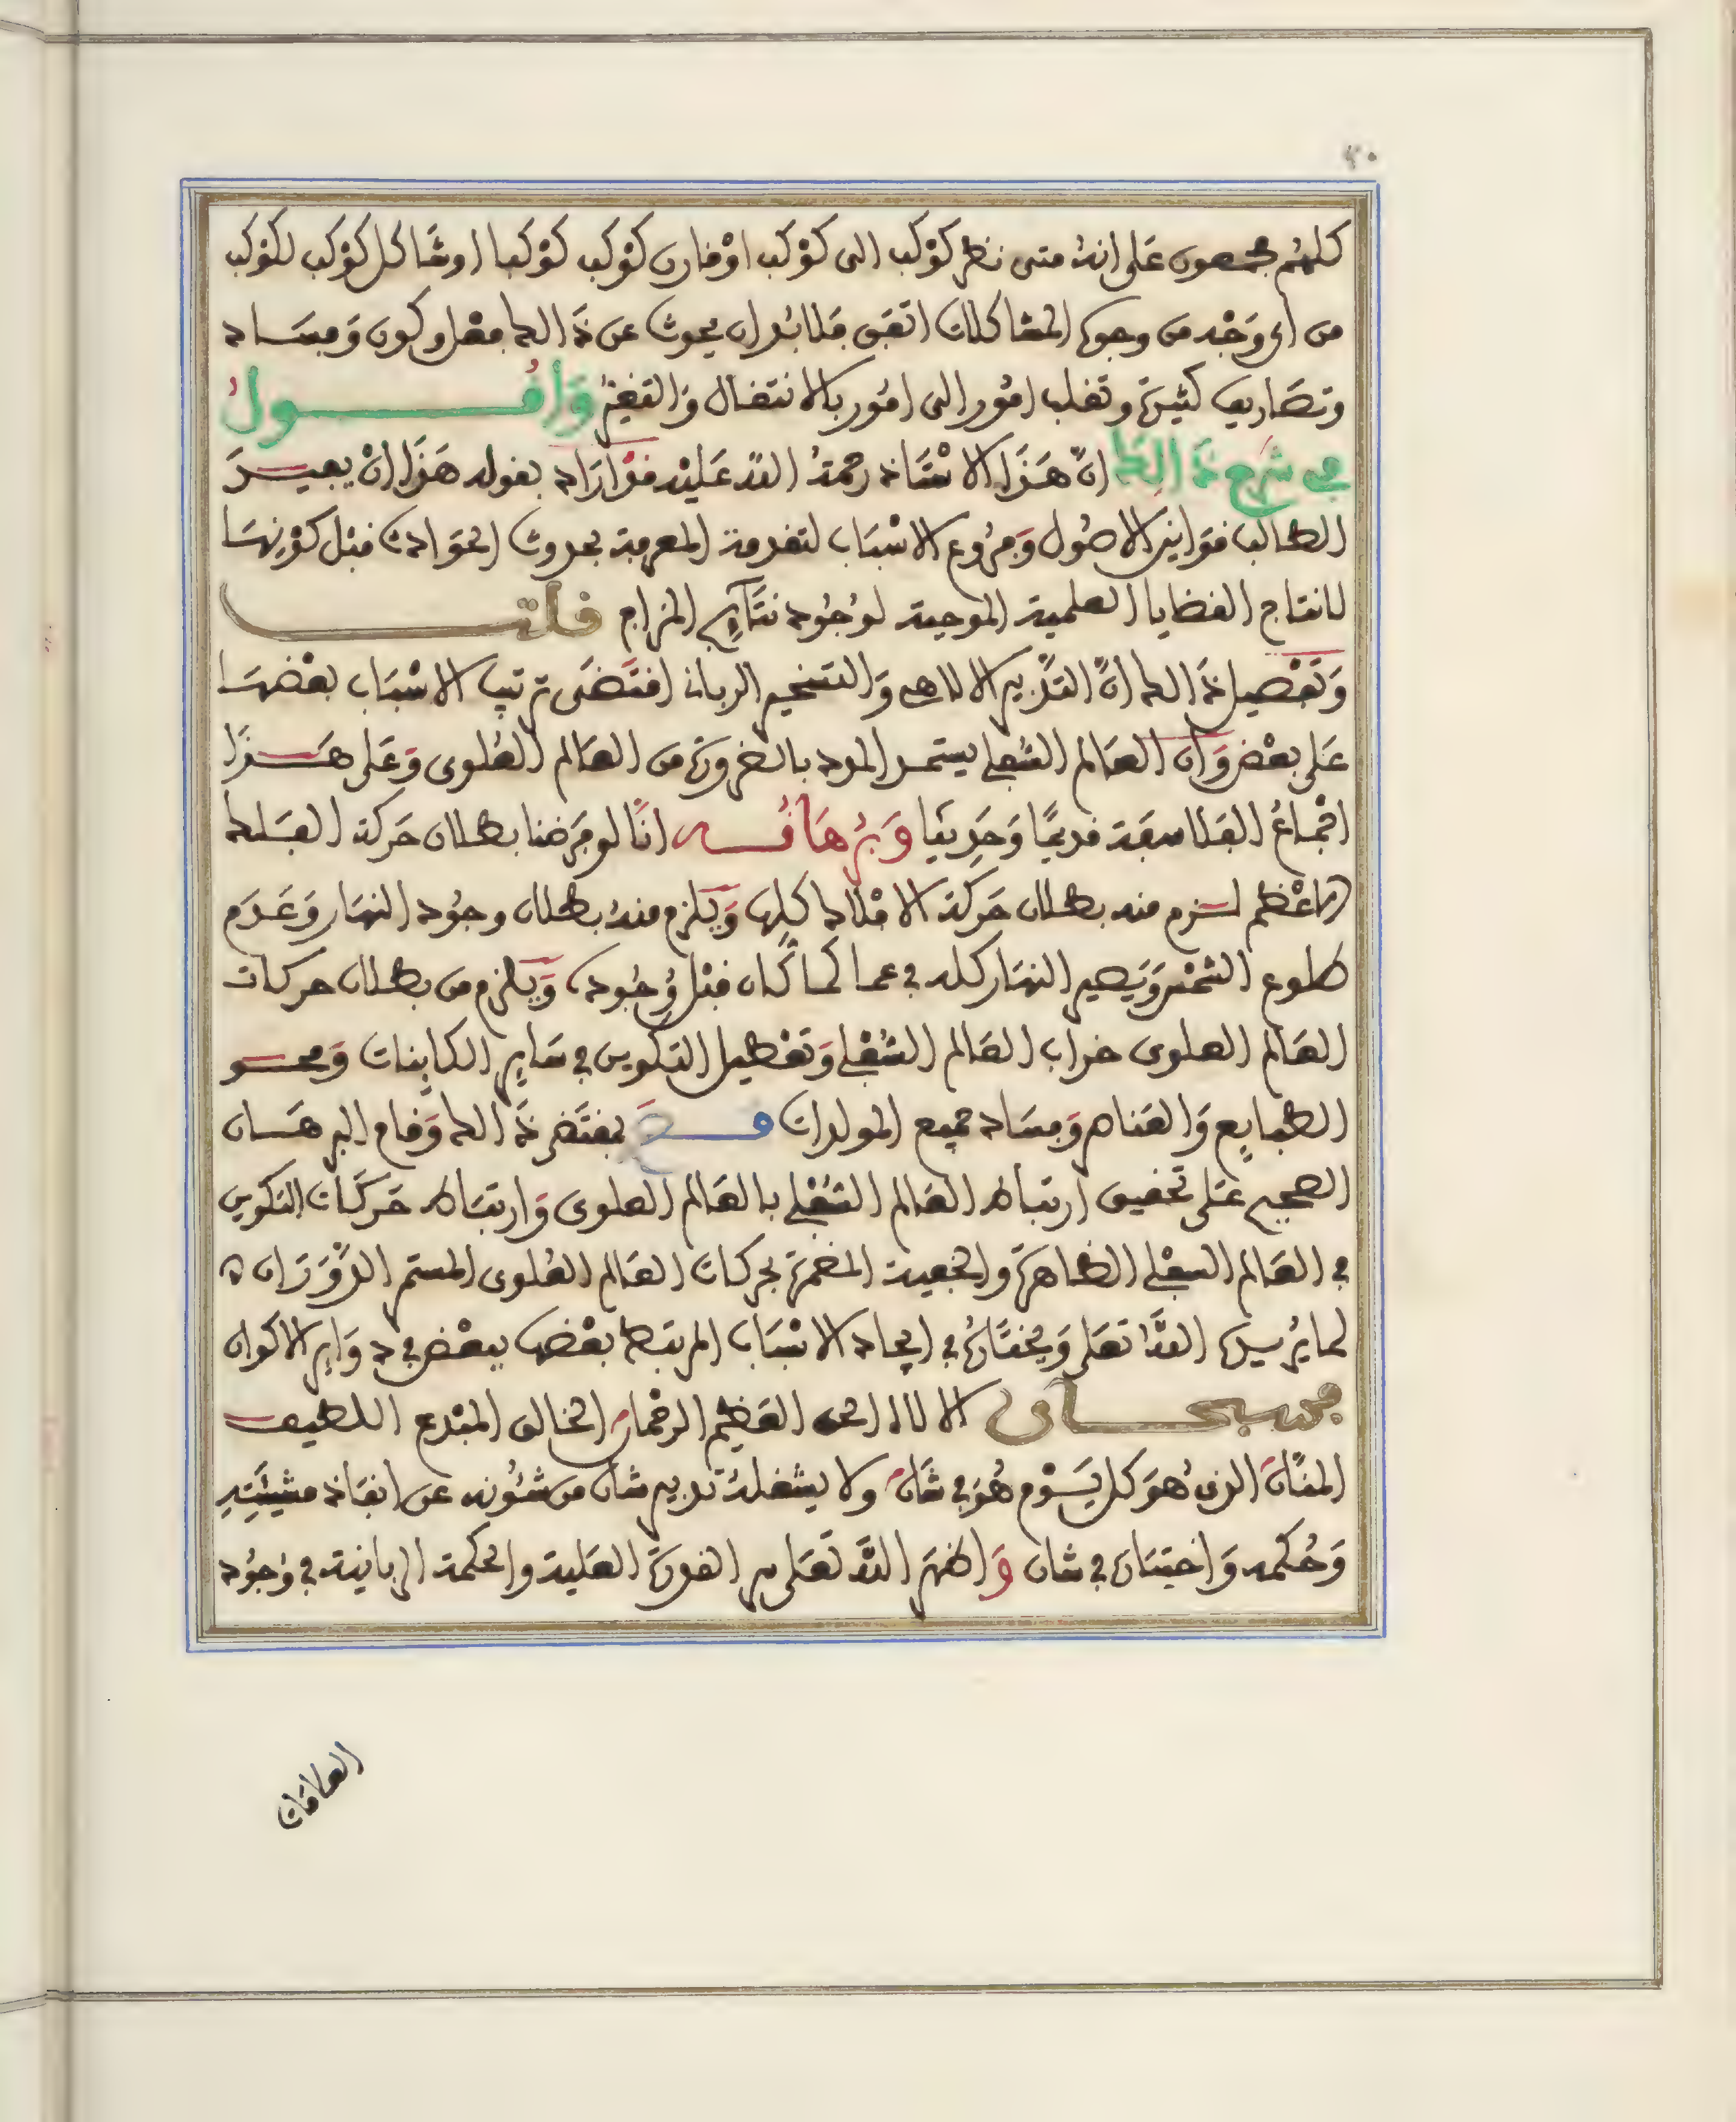 ٣٠
كلهُم مجمعون عَلى انهُ متى نظر كَوْكب الى كَوْكب اوْ قارن كَوْكب كَوْكبا او شَاكل كَوْكب لكَوْكب
من اى وَجْه من وجوه المشاكلات اتفق فلا بُد ان يحدث عن ذَالك فعل وكون وَفسَاد
وتصَاريف كثيرة وتقلب امُور الى امُور بالانتقال وَالتغيُّر وَأقُــول
في شرح ذَالك انّ هَذا الاسْتَاذ رحمهُ اللهُ عَليْه قدْ ارَاد بقوله هَذا انْ يفيــدَ
الطالب قوانين الاصُول وَفرُوع الاسْبَاب لتقدمة المعرفة بحدوث الحوَادث قبْل كوْنهَا
لانتاج القضايا العلمية الموجبة لوُجُود نتَآيج المزاج قلتــ
وَتَفْصيل ذَالك انّ التدْبير الالاهى وَالتسْخير الربانى اقتَضَى ترتيب الاسْبَاب بعْضهَا
عَلى بعْض وَانّ العَالم السُفلي يستمــد المدد بالضرورَة من العَالم العُلوى وَعَلى هَــذَا
اجْمَاعُ الفَلاسفَة قديمًا وَحَديثا وَبُرْهَانُــه انّا لو فرَضنا بطلان حَركة الفَلك
الاعْظم لــزم منه بطلان حَركة الافْلاك كلها وَيَلزم منهُ بطلان وجُود النهَار وَعَدَم
طلوع الشمْس وَيَصير النهَار كله في عما كما كَان قبْل وُجُوده وَيَلزم من بطلان حركات
العَالم العلوى خراب العَالم السُفْلي وَتعْطيل التكوين في سَاير الكاينات وَمحــو
الطبايع وَالعَناصر وَفسَاد جميع المولدات فــحَ بمقتَضى ذَالك وَقام البرهَــان
الصحيح عَلى تحقيق ارتباط العَالم السُفْلي بالعَالم العلوى وَارتبَاط حَركَات التكوين
في العَالم السفْلي الظاهرَة والخفية المضمرَة بحركات العَالم العُلوى المستمر الدوَرَان ه
لما يُريدهُ اللهُ تعَلى وَيختَارهُ في ايجاد الاسْبَاب المرتبطة بعْضها ببعْض في دوَاير الاكوان
فسبحــان الالاه الحى العَظيم الرحْمان الخالق المبْدع اللطيف
المنّان الذى هُوَ كل يَــوْم هُوَ في شَان ولا يشغلهُ تدبير شان من شئُونه عن انفاذ مشيئَتهِ
وَحُكمه وَاختيَاره في شان وَاظهرَ اللهُ تعَلى سر القدرَة العَلية والحكمة الربانية في وُجُود
العلاقات